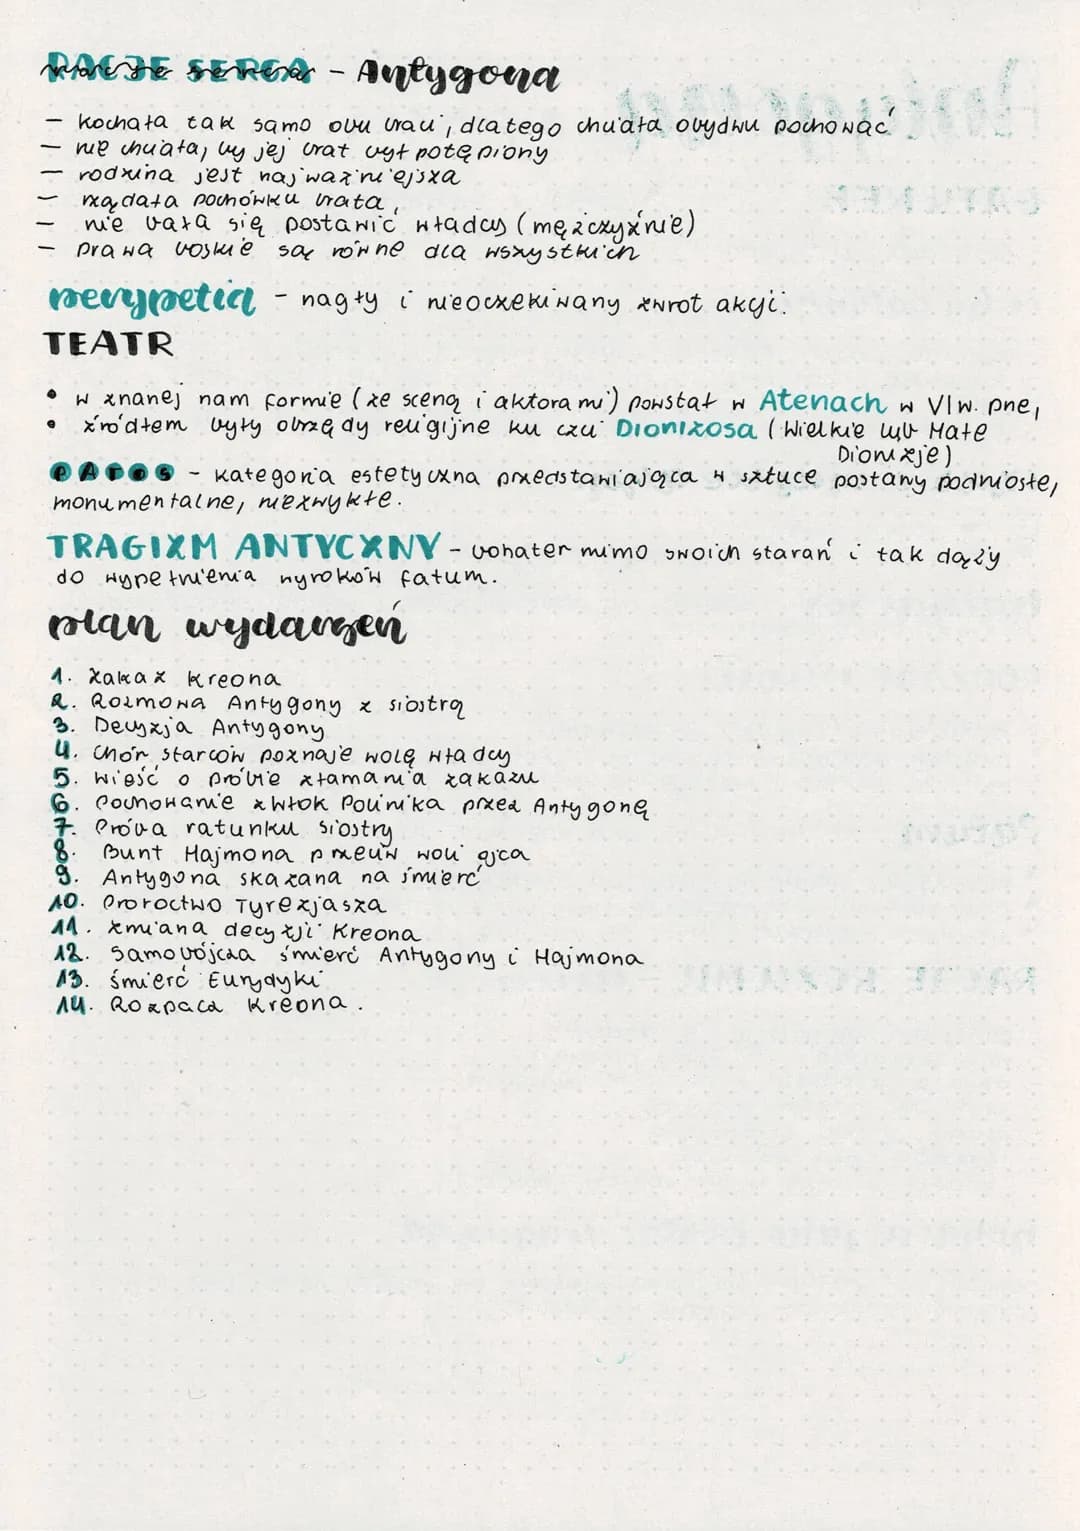 RACJE SERCA - Antygona
– kochała tak samo obu braci, dlatego chciała obydwu pochować
– nie chciała, by jej brat był potępiony
– rodzina jest najważniejsza
– żądała pochówku brata,
– nie bała się postawić władcy (mężczyźnie)
– prawa boskie są równe dla wszystkich
perypetia - nagły i nieoczekiwany zwrot akcji.
TEATR
• w znanej nam formie (ze sceną i aktorami) powstał w Atenach w VI w. pne,
• źródłem były obrzędy religijne ku czci Dionizosa (Wielkie lub Małe
Dionizje)
PATOS - kategoria estetyczna przedstawiająca w sztuce postany podniosłe,
monumentalne, niezwykłe.
TRAGIZM ANTYCZNY - bohater mimo swoich starań i tak dąży
do wypełnienia wyroków fatum.
plan wydarzeń
1. Zakaz Kreona
2. Rozmowa Antygony z siostrą
3. Decyzja Antygony
4. Chór starców poznaje wolę władcy
5. Wieść o próbie złamania zakazu
6. Pochowanie zwłok Polinika przez Antygonę
7. Próba ratunku siostry
8. Bunt Hajmona przeciw woli ojca
9. Antygona skazana na śmierć
10. Proroctwo Tyrezjasza
11. Zmiana decyzji Kreona
12. Samobójcza śmierć Antygony i Hajmona
13. śmierć Eurydyki
14. Rozpacz Kreona.